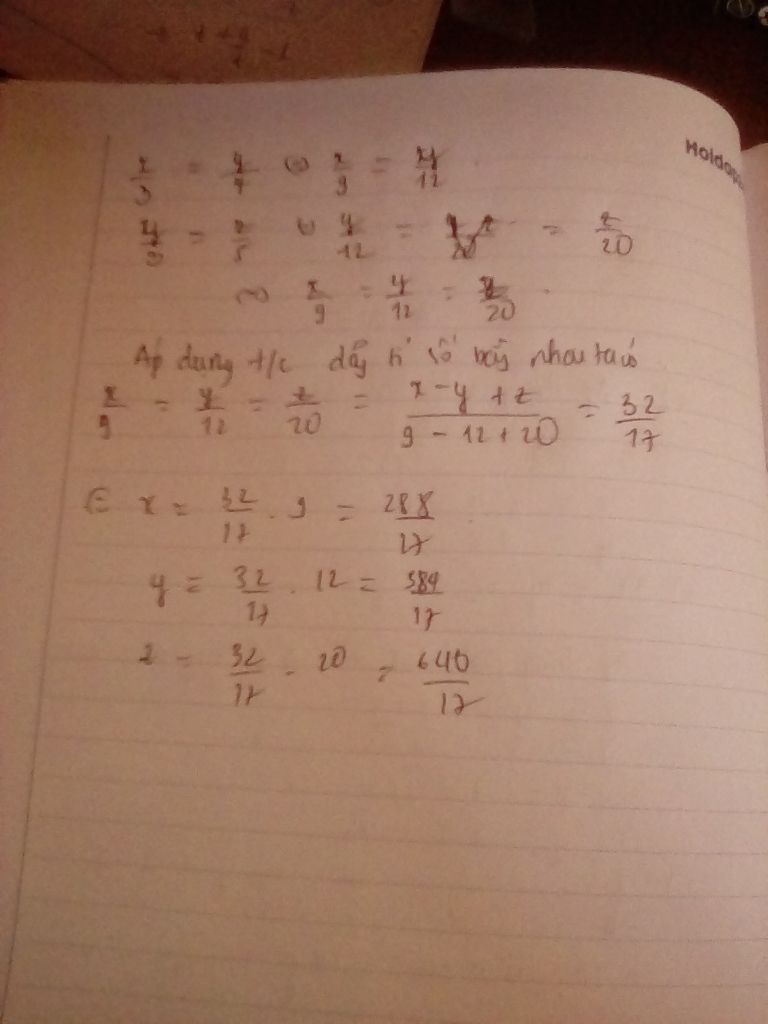 Holdap
x/3 = y/4 ⇔ x/9 = y/12
y/3 = z/5 ⇔ y/12 = z/20
⇒ x/9 = y/12 = z/20
Áp dụng t/c dãy tỉ số bằng nhau ta có
x/9 = y/12 = z/20 = (x - y + z)/(9 - 12 + 20) = 32/17
x = 32/17 . 9 = 288/17
y = 32/17 . 12 = 384/17
z = 32/17 . 20 = 640/17